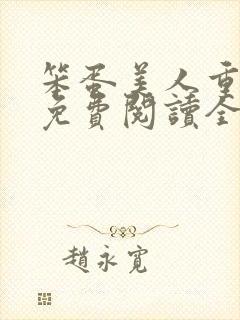 笨蛋美人重
免費閱讀全
趙永寬